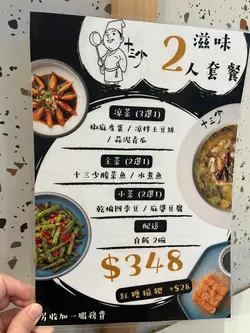 十三少
滋味
2人套餐
涼菜 (3選1)
椒麻皮蛋 / 涼拌土豆絲
/ 蒜泥青瓜
主菜 (2選1)
十三少酸菜魚 / 水煮魚
小菜 (2選1)
乾煸四季豆 / 麻婆豆腐
配送
白飯2碗
$348
紅糖糍粑 +$28
另收加一服務費